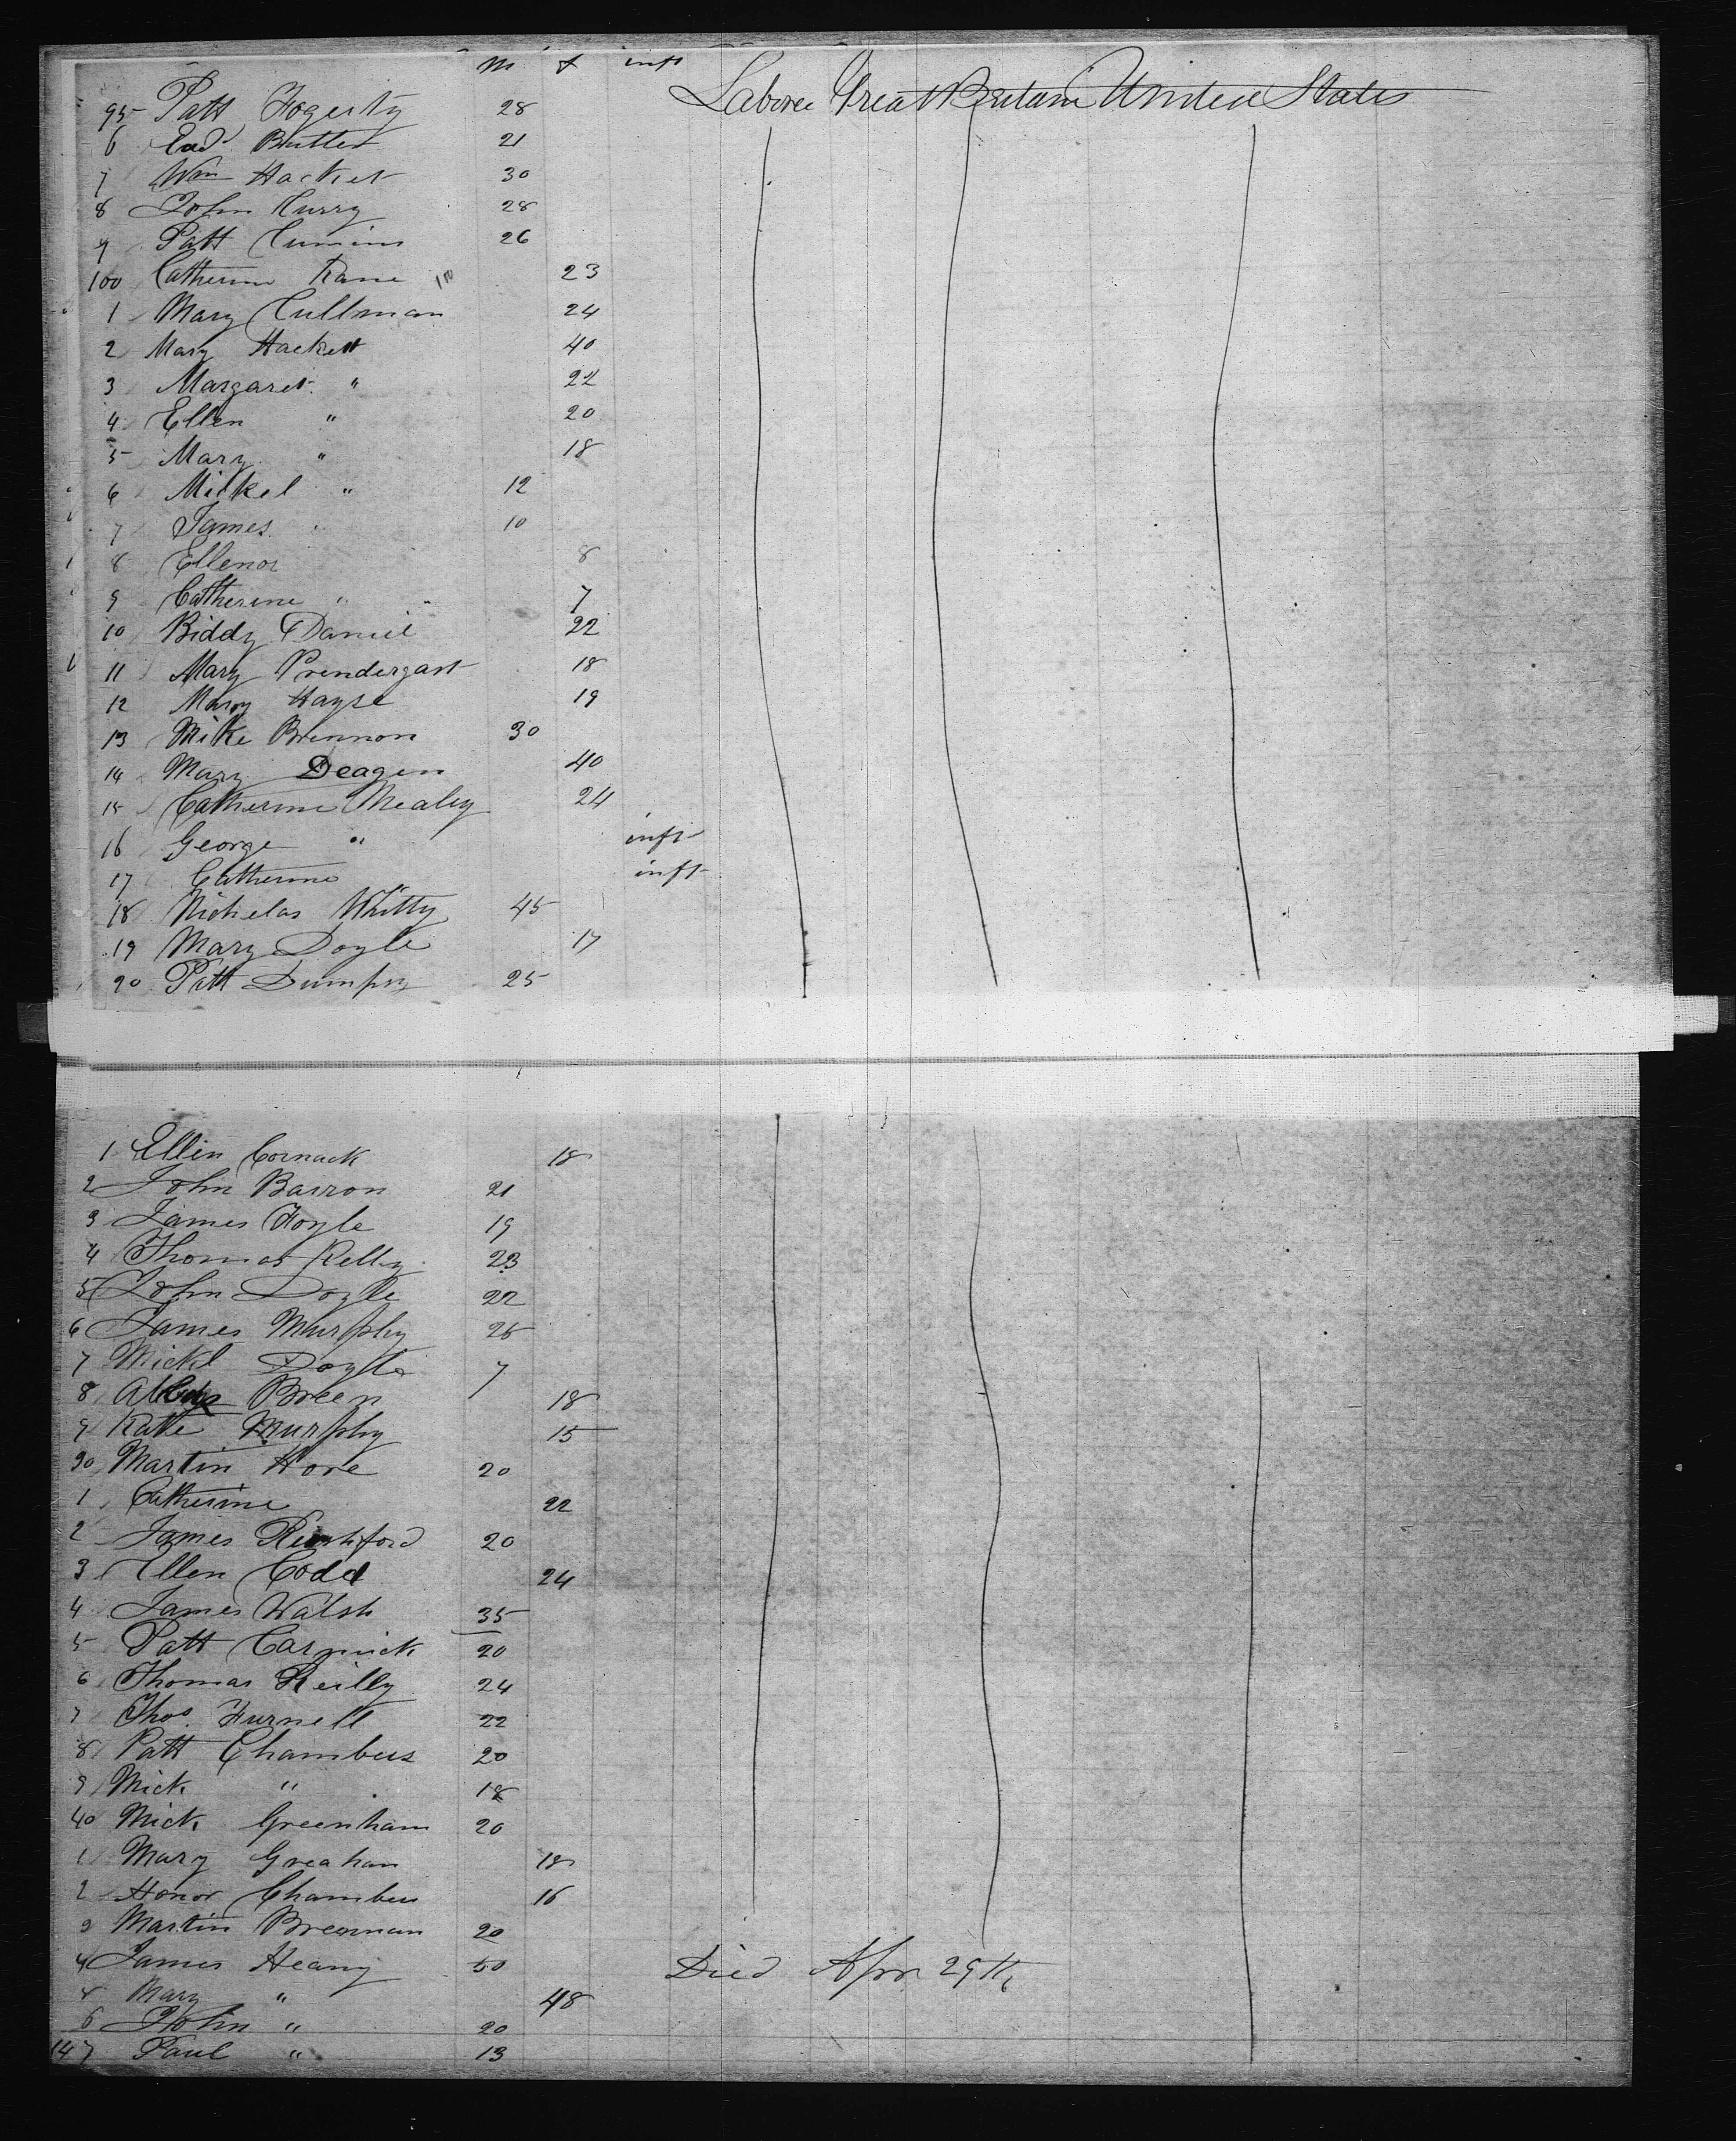 m f inft
95 Patt Fogerty 28 Laborer Great Britain United States
6 Ed Butler 21
7 Wm Hacket 30
8 John Curry 28
9 Patt Cumins 26
100 Catherine Kane 23
1 Mary Cullman 24
2 Mary Hackett 40
3 Margaret " 22
4 Ellen " 20
5 Mary " 18
6 Mickel " 12
7 James " 10
8 Ellenor 8
9 Catherine " 7
10 Biddy Daniel 22
11 Mary Prendergast 18
12 Mary Hayse 19
13 Mike Brennon 30
14 Mary Deagen 40
15 Catherine Mealey 24
16 George " inft
17 Catherine " inft
18 Nichelas Whitty 45
19 Mary Doyle 17
20 Patt Dumpsy 25
1 Ellin Cormack 18
2 John Barron 21
3 James Foyle 19
4 Thomas Kelly 23
5 John Doyle 22
6 James Murphy 25
7 Mickl Doyle 7
8 Breen 18
9 Kate Murphy 15
30 Martin Hore 20
1 Catherine 22
2 James 20
3 Ellen Codd 24
4 James Walsh 35
5 Patt Carmick 20
6 Thomas Reilly 24
7 Thos Furnell 22
8 Patt Chambers 20
9 Mick " 18
40 Mick Greenham 20
1 Mary Greahan 18
2 Honor Chambers 16
3 Martin Breennan 20
4 James Heany 50 Died Apr 29th
5 Mary " 48
6 John " 20
147 Paul " 13